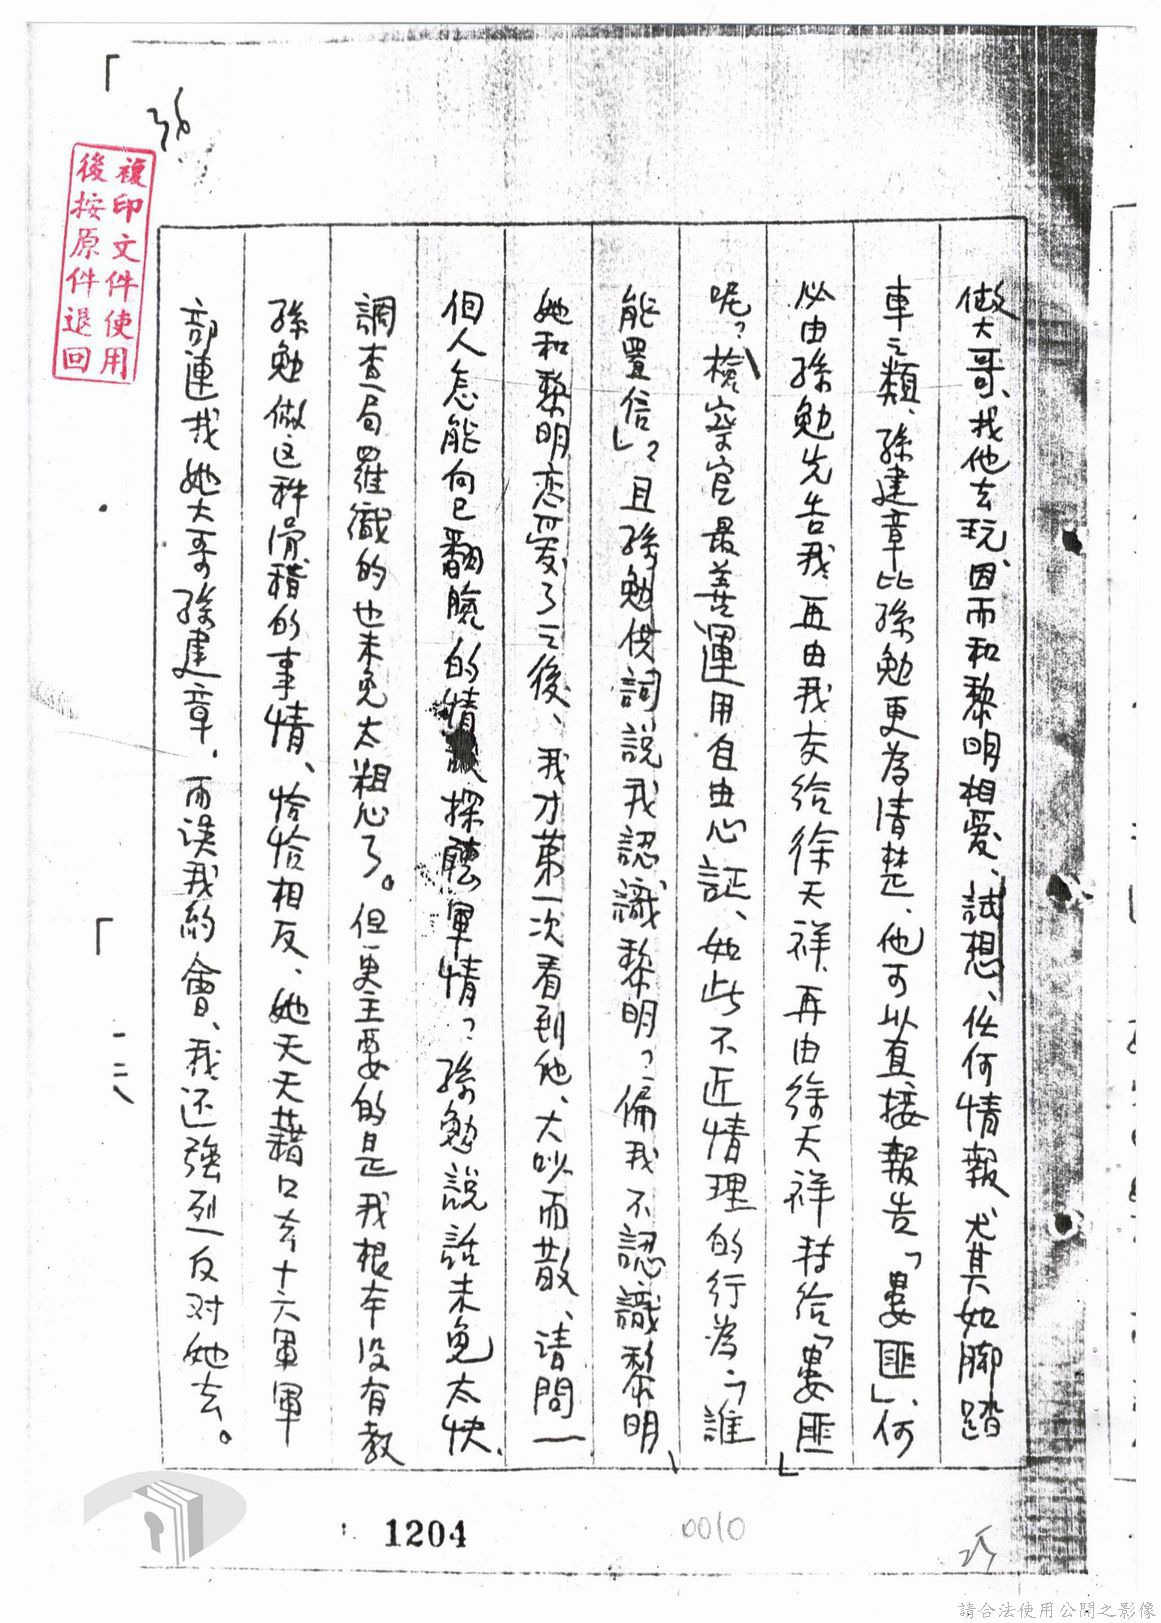 做大哥、找他去玩、因而和黎明相爱、試想、任何情報尤其如腳踏
車之類、孫建章比孫勉更為清楚、他可以直接報告「婁匪」、何
必由孫勉先告我、再由我交給徐天祥、再由徐天祥持給「婁匪」
呢？檢察官最善運用自由心証、如此不近情理的行為、「誰
能置信」？且孫勉供詞說我認識黎明？偏我不認識黎明、
她和黎明恋爱了之後、我才第一次看到他、大吵而散、请問一
個人怎能向已翻臉的情敵探聽軍情？孫勉說話未免太快、
調查局羅織的也未免太粗心了。但更主要的是我根本没有教
孫勉做这种滑稽的事情、恰恰相反、她天天藉口去十六軍軍
部連找她大哥孫建章、而误我約會、我还強烈反对她去。
一二、
複印文件使用
後按原件退回
1204
0010
請合法使用公開之影像